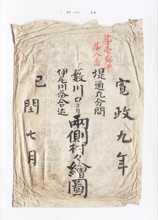 寛政九年
堤通九分間
藪川口ヨリ
伊尾川落合迄
両側村々繪圖
巳閏七月